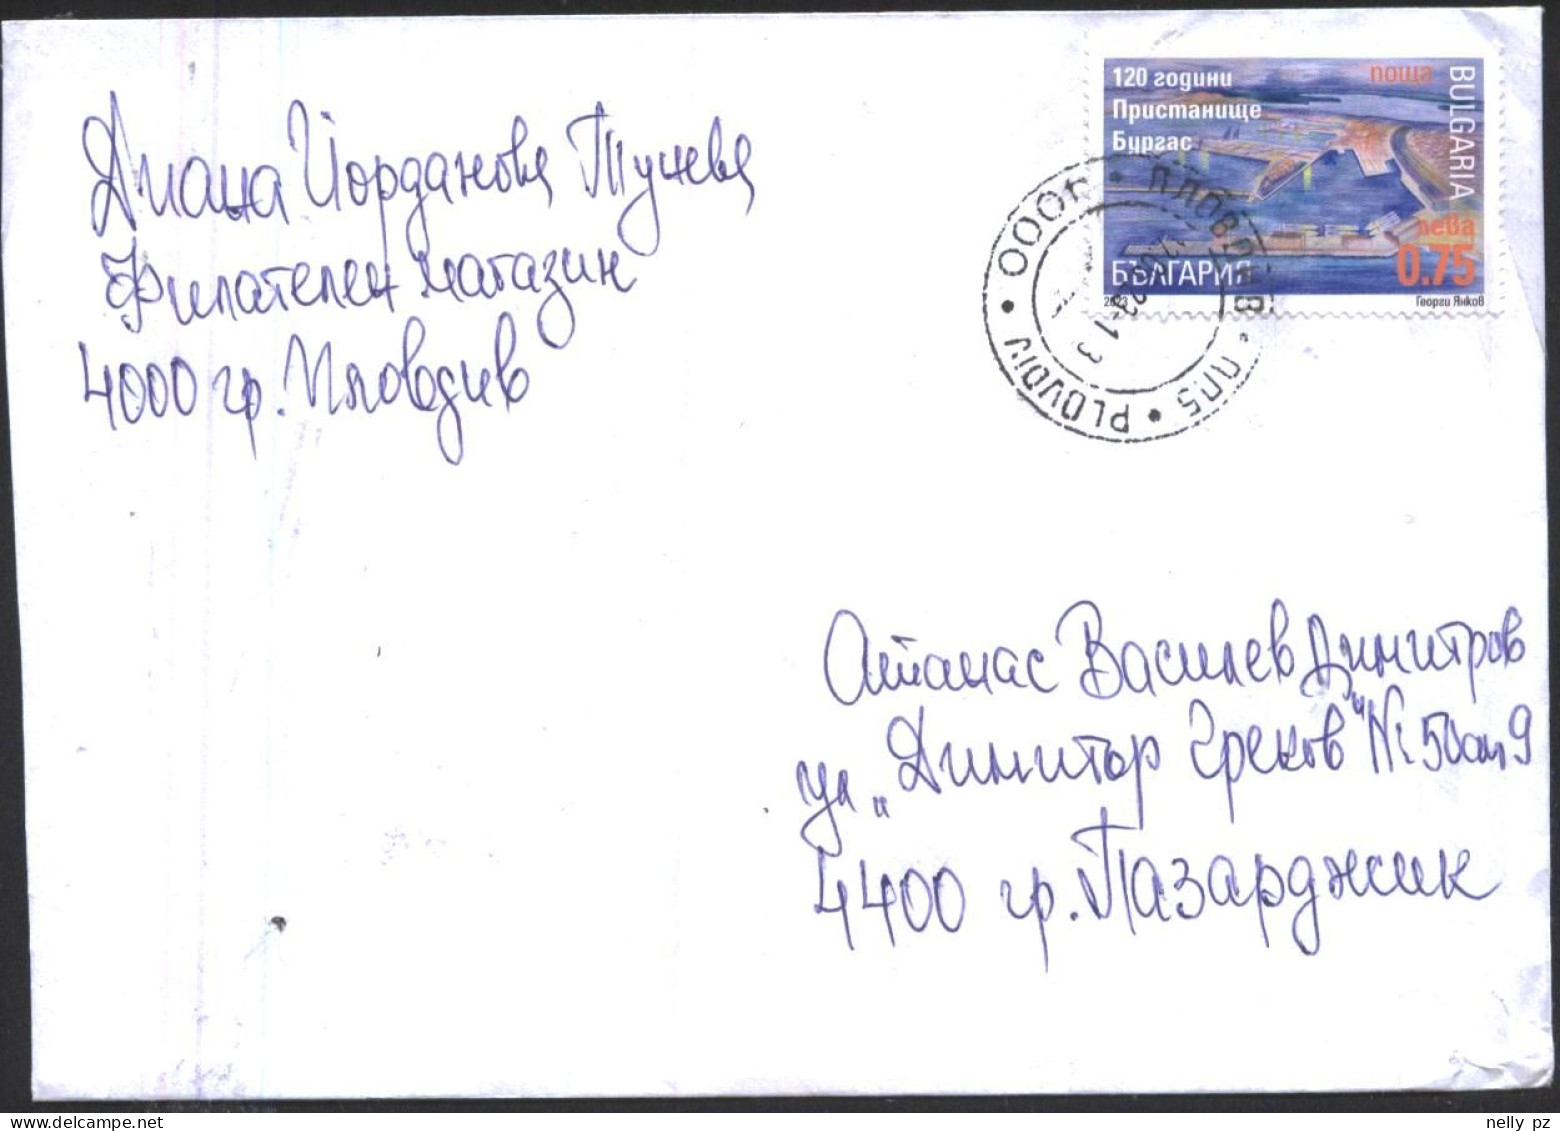 Диана Йорданова Тунева
Филателен магазин
4000 гр. Пловдив
120 години
Пристанище
Бургас
поща
BULGARIA
лева
0.75
БЪЛГАРИЯ
2023
Георги Янков
4000 • ПЛОВДИВ • ПП5 • PLOVDIV •
Атанас Василев Димитров
ул „Димитър Греков" № 50 ап 9
4400 гр. Пазарджик
nelly pz